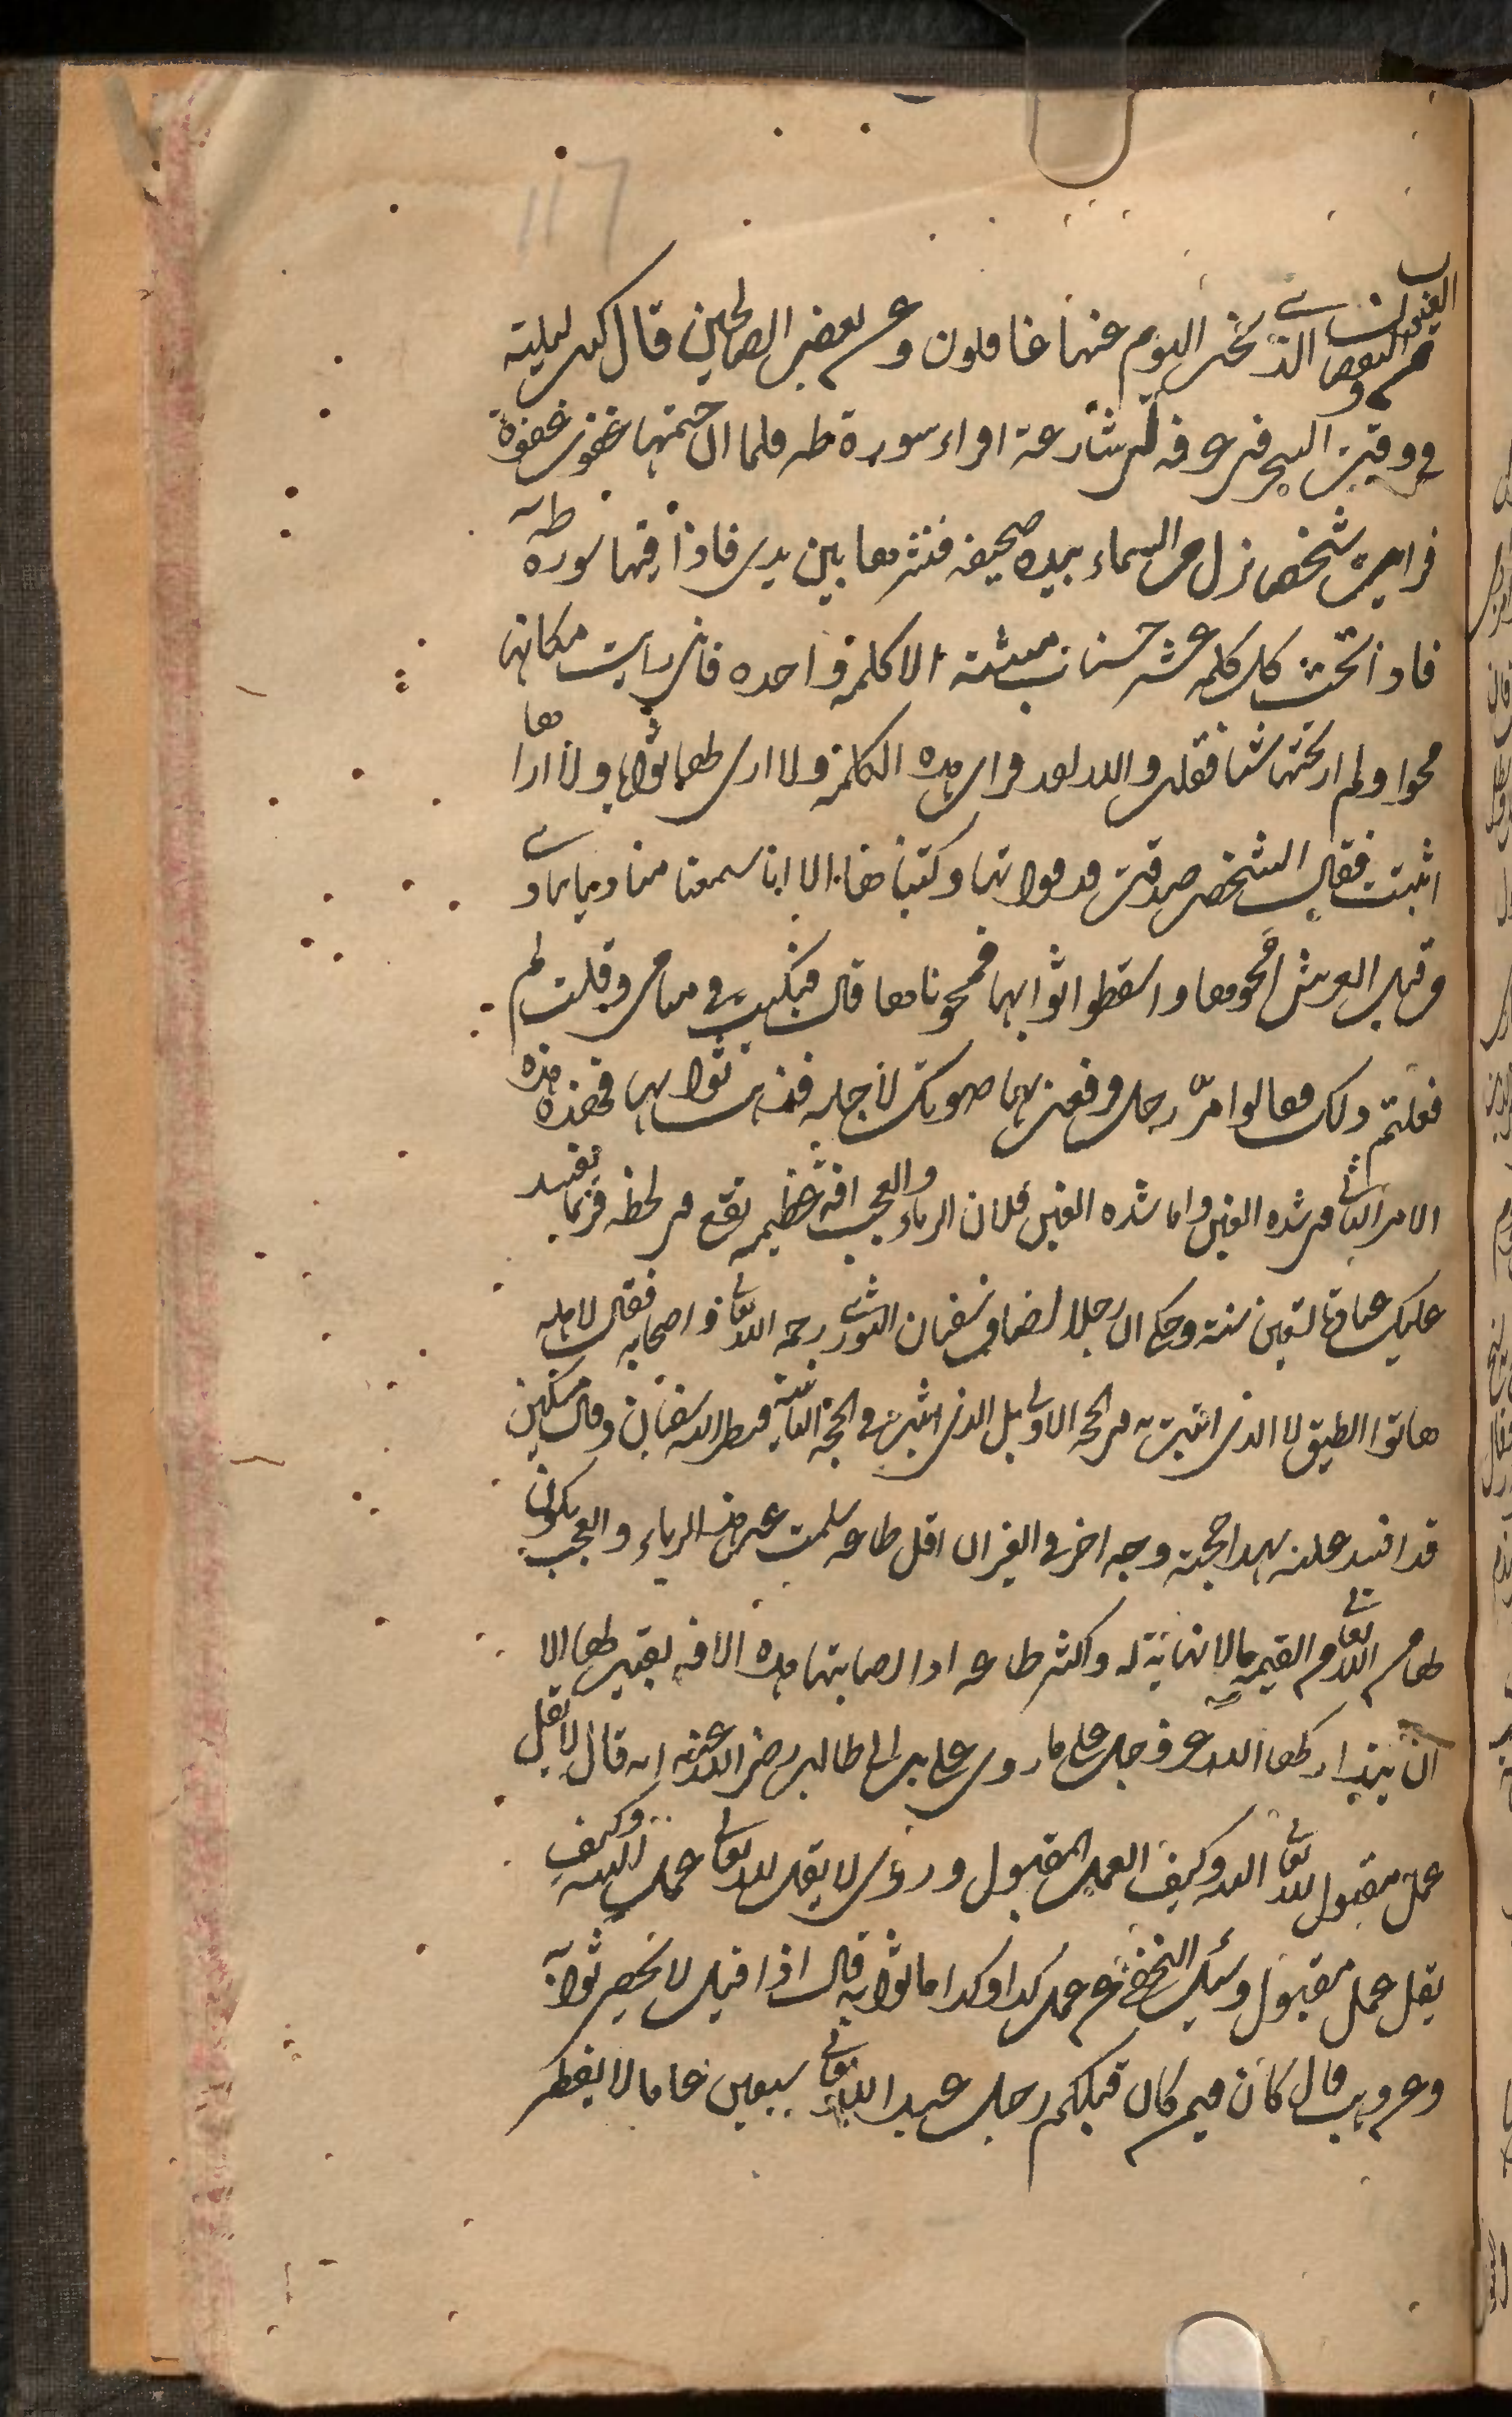 الغبن والنقص الذي نحن اليوم عنها غافلون وعن بعض الصالحين قال كنت ليلة
في وقت السحر في غرفة لي شارعة اقراء سورة طه فلما ان ختمتها غفوت غفوة
فرايت شخص نزل من السماء بيده صحيفة فنشرها بين يدي فاذا فيها سورة طه
فاذا تحت كل كلمة عشر حسنات مثبتة الا كلمة واحدة فاني رايت مكانها
محوا ولم ار تحتها شيئا فقلت والله لقد قرات هذه الكلمة ولا ارى لها ثوابا ولا اراها
اثبتت فقال الشخص صدقت قد قراتها وكتبناها الا انا سمعنا مناديا ينادي
من قبل العرش امحوها واسقطوا ثوابها فمحوناها قال فبكيت في منامي وقلت لم
فعلتم ذلك فقالوا مر رجل فرفعت بها صوتك لاجله فذهب ثوابها فخذه هذه
الامر الثاني من شدة الغبن واما شدة الغبن فلان الرياء والعجب افة عظيمة تقع في لحظة فربما تفسد
عليك عبادة سبعين سنة وحكي ان رجلا اضاف سفيان الثوري رحمه الله تعالى واصحابه فقال لاهله
هاتوا الطبق لا الذي اتيت به في الحجة الاولى بل الذي اتيت في الحجة الثانية فنظر اليه سفيان وقال مسكين
قد افسد عليه بهذا حجته وجه اخر في الغبن ان اقل طاعة سلمت عن الرياء والعجب يكون
لها من الله تعالى من القيمة مالا نهاية له واكثر طاعة اذا اصابتها هذه الافة لا بقيت لها الا
ان يتدارك لها الله عز وجل على ما روي علي بن ابي طالب رضي الله عنه انه قال لا يقل
عمل مقبول لله تعالى البتة وكيف العمل المقبول وروي لا يقل لله تعالى عمل البتة وكيف
يقل عمل مقبول وسئل النخعي عن عمل كذا وكذا ما ثوابه قال اذا قبل لا يحصى ثوابه
وعن وهب قال كان فيمن كان قبلكم رجل عبد الله تعالى سبعين عاما لا يفطر